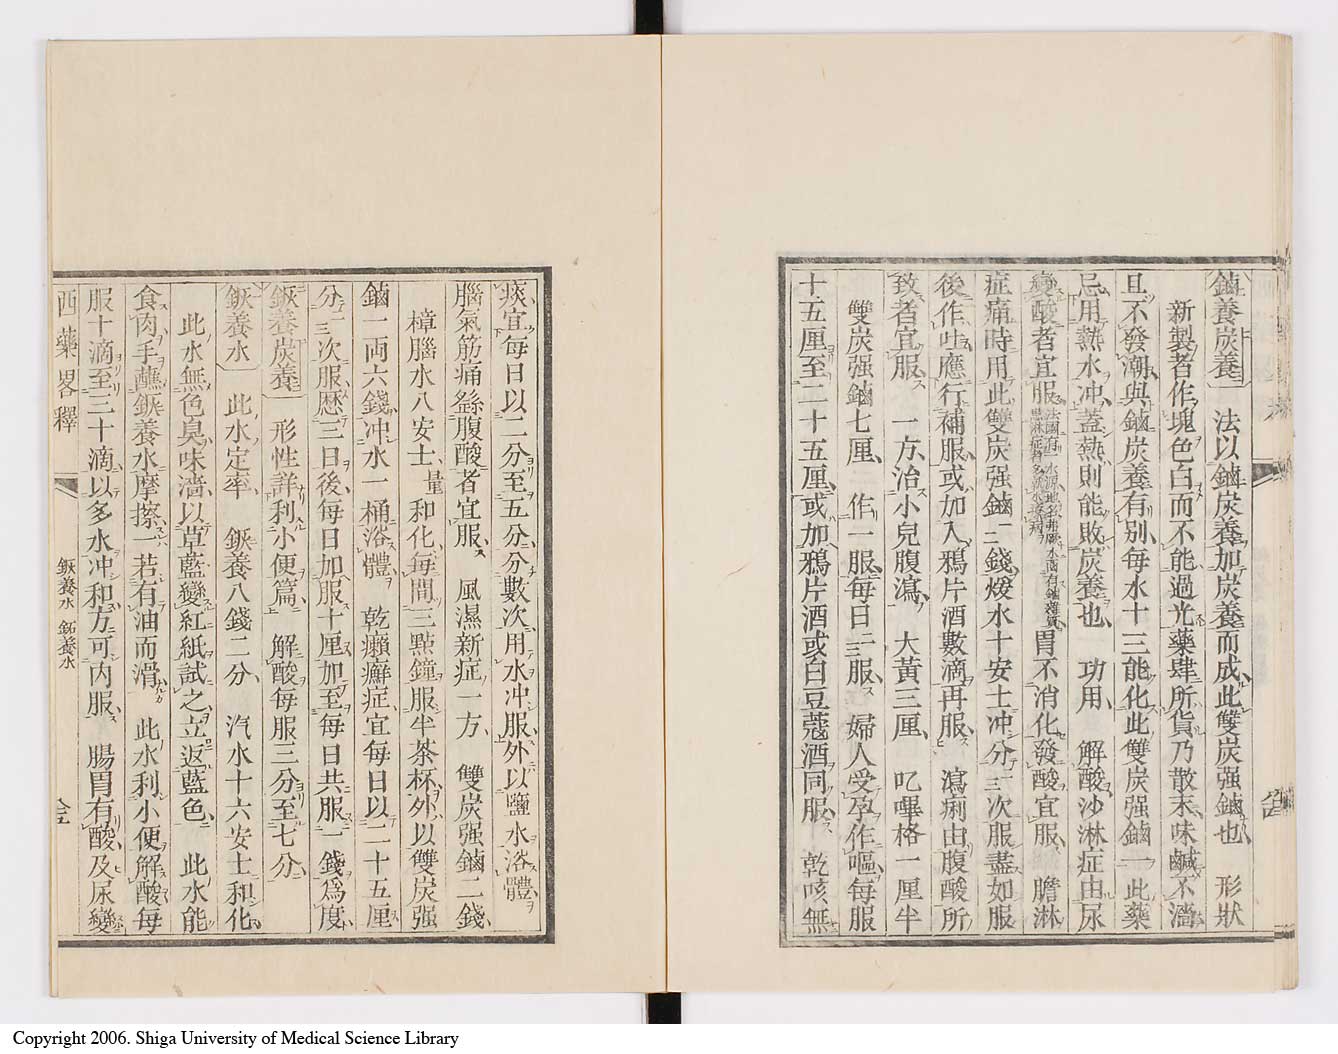 鏀養炭養 法以鏀炭養加炭養而成此雙炭强鏀也 形狀
新製者作塊色白而不能過光藥肆所貨乃散末味鹹不濇
且不發潮與鏀炭養有別每水十三能化此雙炭强鏀一此藥
忌用熱水冲蓋熱則能敗炭養也 功用 解酸沙淋症由尿
變酸者宜服 胃不消化發酸宜服 膽淋
症痛時用此雙炭强鏀二錢煖水十安士冲分三次服盡如服
後作吐應行補服或加入鴉片酒數滴再服 瀉痢由腹酸所
致者宜服 一方治小兒腹瀉 大黃三厘 叱嗶格一厘半
雙炭强鏀七厘 作一服每日二三服 婦人受孕作嘔每服
十五厘至二十五厘或加鴉片酒或白豆蔻酒同服 乾咳無
痰宜每日以二分至五分分數次用水冲服外以鹽水浴體
腦氣筋痛繇腹酸者宜服 風濕新症一方 雙炭强鏀二錢
樟腦水八安士量 和化每間三點鐘服半茶杯外以雙炭强
鏀一両六錢冲水一桶浴體 乾癩癬症宜每日以二十五厘
分二三次服歷三日後每日加服十厘加至每日共服一錢爲度
鋠養炭養 形性詳利小便篇 解酸每服三分至七分
鋠養水 此水定率 鋠養八錢二分 汽水十六安士和化
此水無色臭味濇以草藍變紅紙試之立返藍色 此水能
食肉手蘸鋠養水摩擦一若有油而滑 此水利小便解酸每
服十滴至三十滴以多水冲和方可內服 腸胃有酸及尿變
西藥畧釋
鋠養水 鉐養水